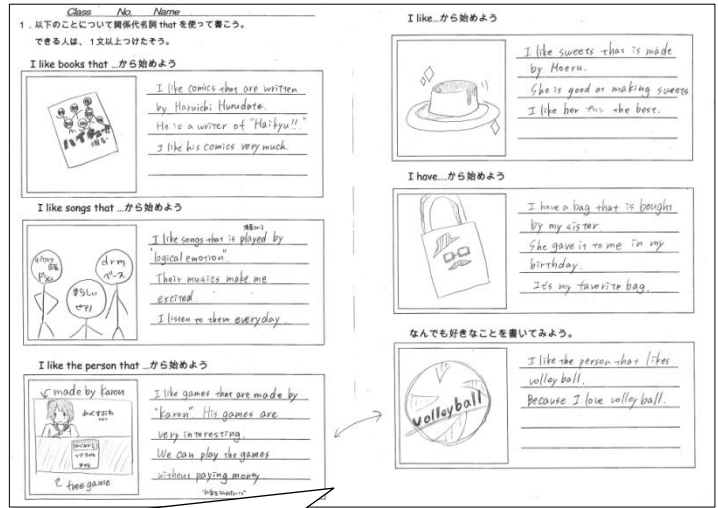 Class No. Name
1．以下のことについて関係代名詞 that を使って書こう。
できる人は、1文以上つけたそう。
I like books that ...から始めよう
ハイキュー!!
I like comics that are written
by Haruichi Hurudate.
He is a writer of "Haikyu!!."
I like his comics very much.
I like songs that ...から始めよう
drm
ベース
まらしぃ
ピアノ
I like songs that is played by
"logical emotion"
Their musics make me
excited.
I listen to them everyday.
I like the person that ...から始めよう
made by Karon
free game
I like games that are made by
"karon" His games are
very interesting.
We can play the games
without paying money.
I like...から始めよう
I like sweets that is made
by Moeru.
She is good at making sweets
I like her the best.
I have....から始めよう
I have a bag that is bought
by my sister.
She gave it to me in my
birthday.
It's my favorite bag.
なんでも好きなことを書いてみよう。
volleyball
I like the person that likes
volleyball.
Because I love volleyball.